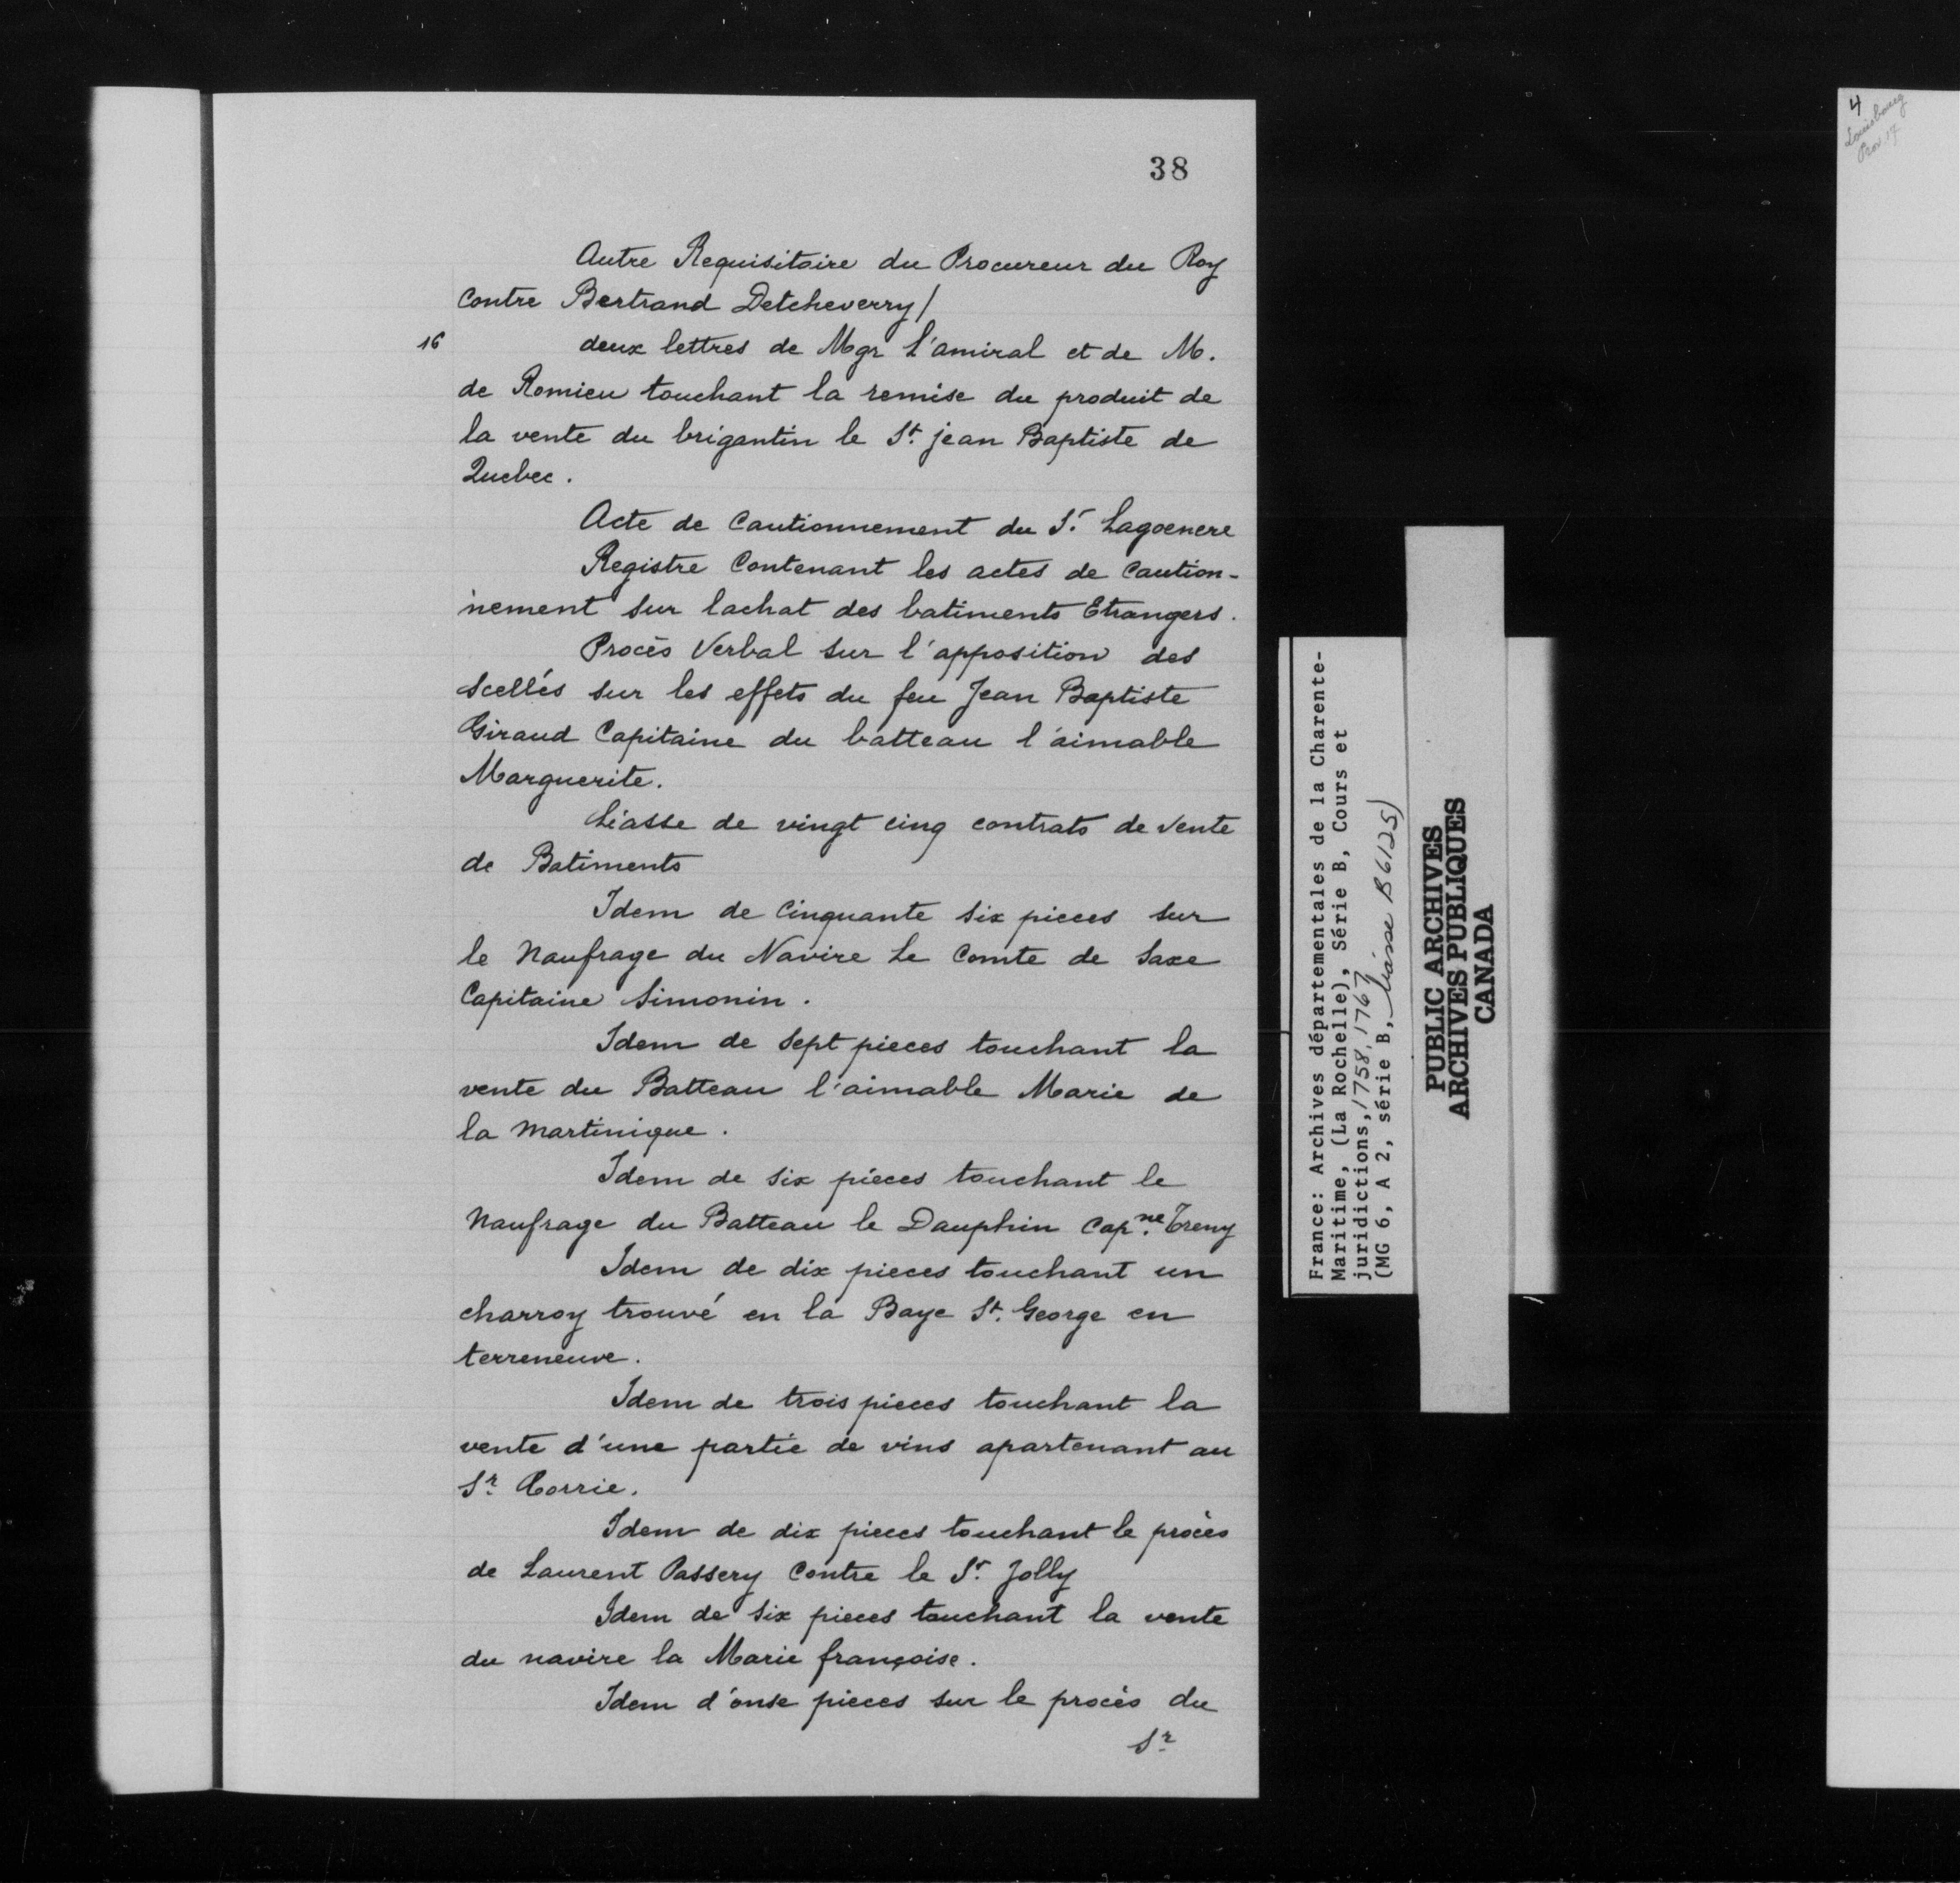 38
Autre Requisitoire du Procureur du Roy
contre Bertrand Detcheverry/
16
deux lettres de Mgr l'amiral et de M.
de Romieu touchant la remise du produit de
la vente du brigantin le St. jean Baptiste de
Quebec.
Acte de Cautionnement du Sr. Lagoenere
Registre Contenant les actes de Caution-
nement sur lachat des batiments Etrangers.
Procès Verbal sur l'apposition des
scellés sur les effets du feu Jean Baptiste
Giraud Capitaine du batteau l'aimable
Marguerite.
Liasse de vingt cinq contrats de vente
de Batiments
Idem de Cinquante six pieces sur
le Naufrage du Navire Le Comte de Saxe
Capitaine Simonin.
Idem de Sept pieces touchant la
vente du Batteau l'aimable Marie de
la Martinique.
Idem de six pièces touchant le
Naufrage du Batteau le Dauphin Capne. Treny
Idem de dix pieces touchant un
charroy trouvé en la Baye St. George en
terreneuve.
Idem de trois pieces touchant la
vente d'une partie de vins apartenant au
Sr. Corrie.
Idem de dix pieces touchant le procès
de Laurent Passery Contre le Sr. Jolly
Idem de six pieces touchant la vente
du navire la Marie françoise.
Idem d'onse pieces sur le procès du
Sr.
France: Archives départementales de la Charente-
Maritime, (La Rochelle), Série B, Cours et
juridictions, 1758, 1767
(MG 6, A 2, série B, liasse B6125)
PUBLIC ARCHIVES
ARCHIVES PUBLIQUES
CANADA
4
Louisbourg
17